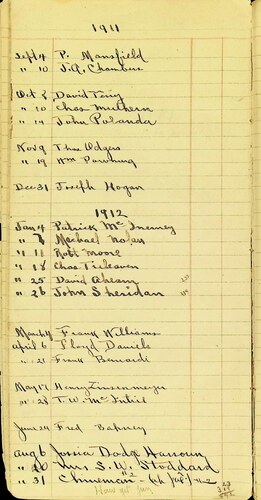 1911
Sept 4 P. Mansfield
" 10 J.A. Chambers
Oct 2 David Terry
" 10 Chas Mulhern
" 14 John Polanda
Nov 9 Thos Odgers
" 19 Wm
Dec 31 Joseph Hogan
1912
Jan 4 Patrick Mc Inerney
" 8 Michael Nolan
" 11 Robt Moore
" 18 Chas Treleaven
" 25 David Ahearn
" 28 John Sheridan
March 4 Frank Williams
April 6 Lloyd Daniels
" 21 Frank
May 17 Henry Zinsenmeyer
" 28 T.W.
June 24 Fred
Aug 6 Josia Dodge
" 20 Mrs S. W. Stoddard
" 31 Chineman